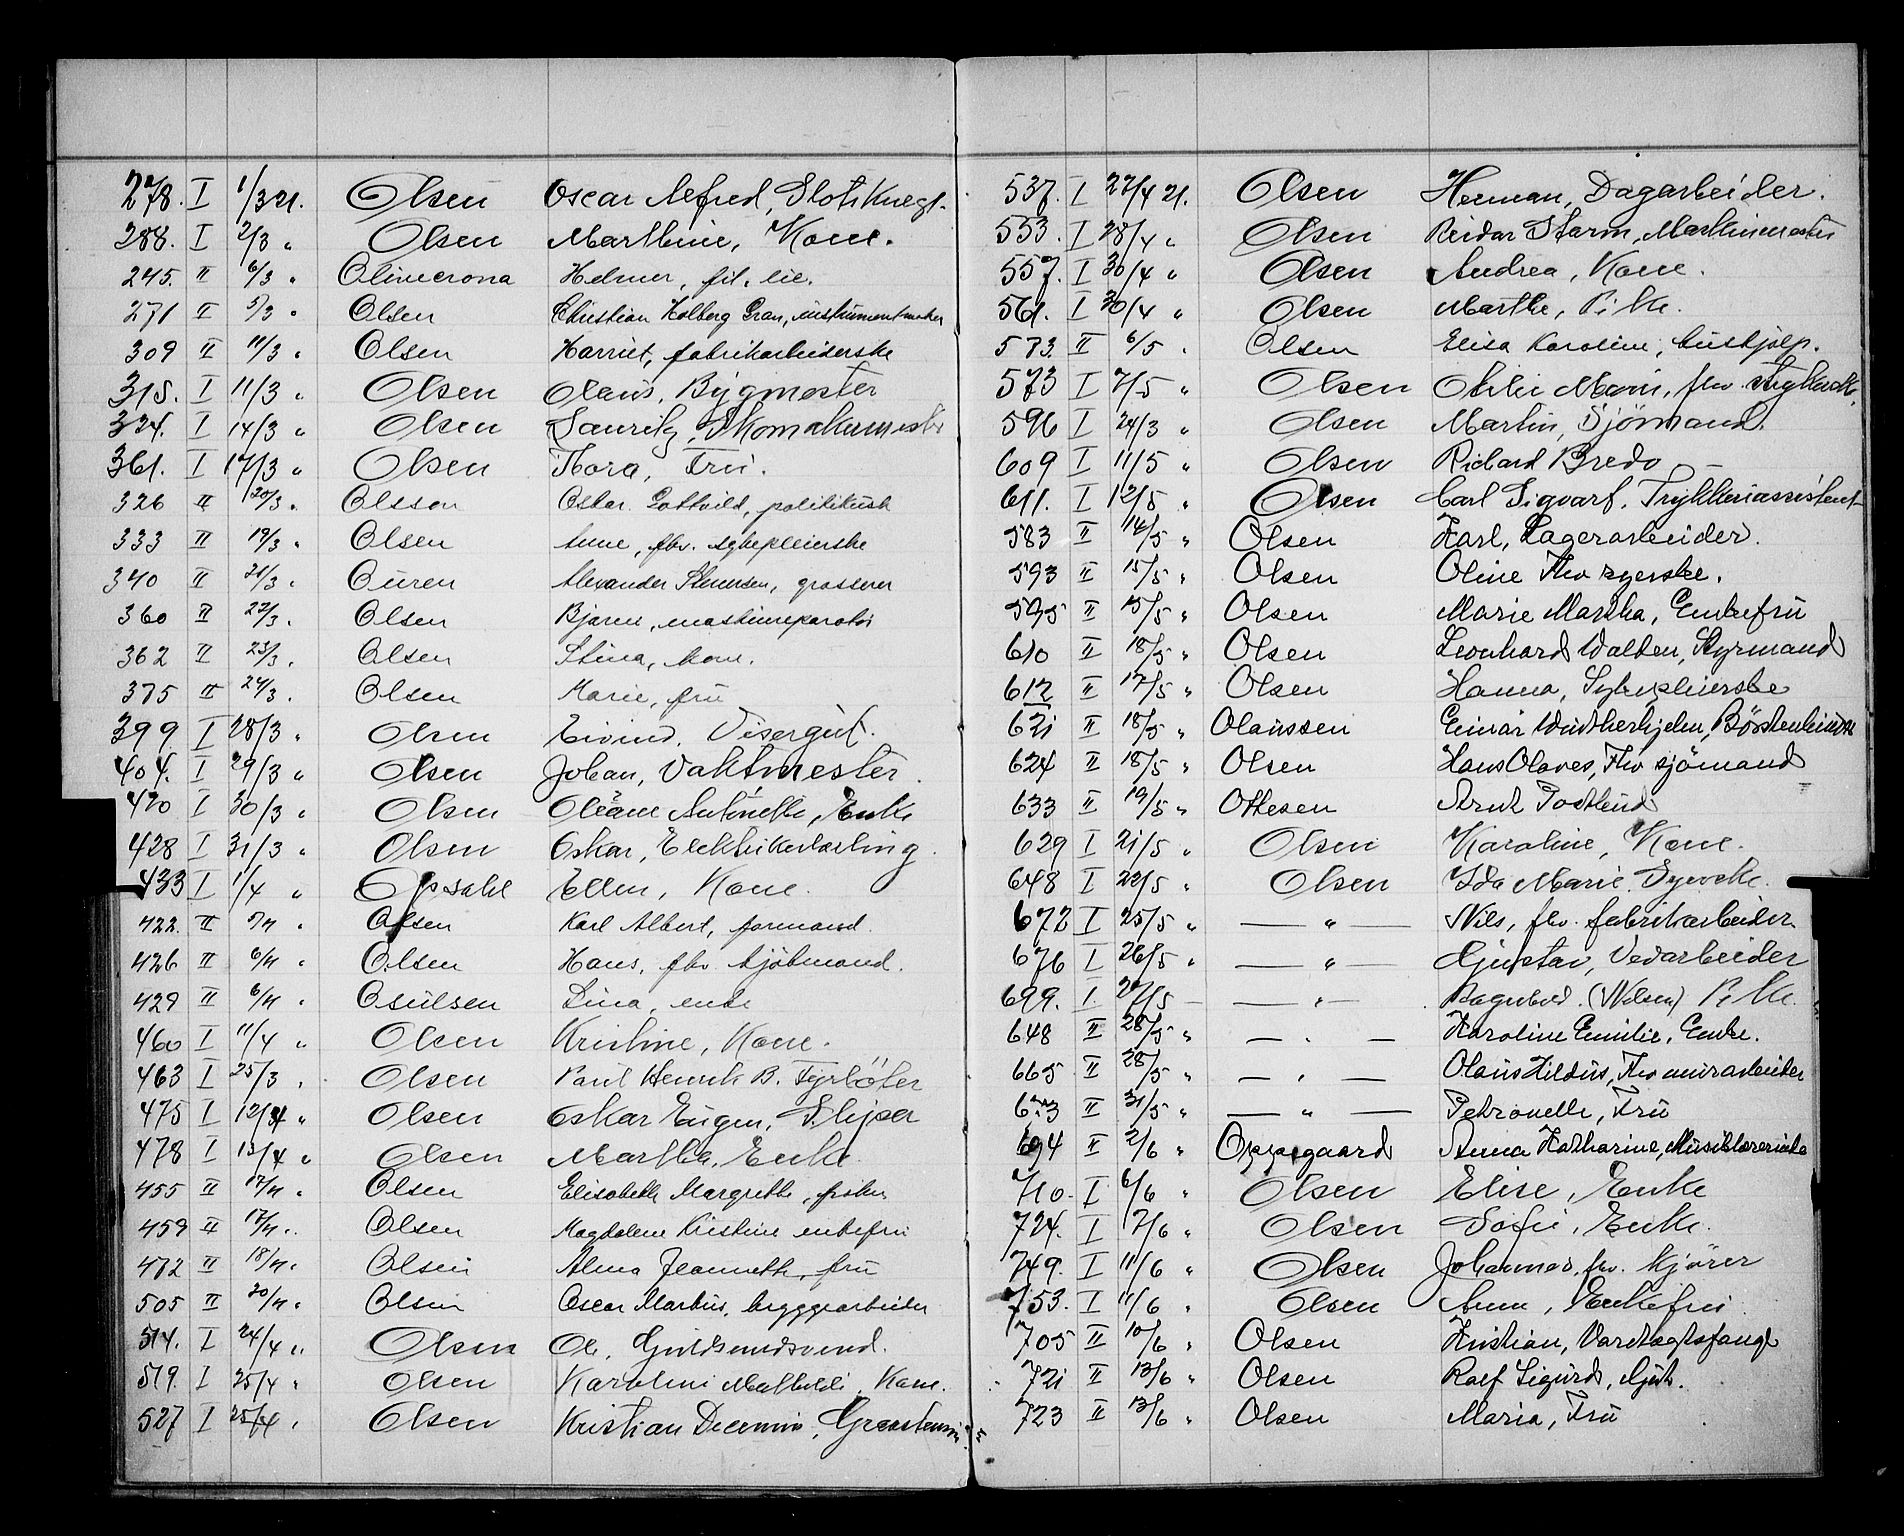 278. I 1/3 21. Olsen Oscar Alfred, Slotsknegt.
288. I 2/3 " Olsen Marthine, Kone.
245. II 6/3 " Olivecrona Helmer, fil. lic.
271 II 5/3 " Olsen Christian Holberg Gran, instrumentmaker
309 II 11/3 " Olsen Harriet, fabrikarbeiderske
315. I 11/3 " Olsen Olaus, Bygmester
334. I 14/3 " Olsen Lauritz, Skomakermester
361. I 17/3 " Olsen Thora, Fru.
326 II 20/3 " Olsson Oskar Gottvild, politikusk
333 II 19/3 " Olsen Anne, fhv. sykepleierske
340 II 21/3 " Ouren Alexander Stenersen, grosserer
360 II 22/3 " Olsen Bjarne, maskinreparatør
362 II 23/3 " Olsen Stina, kone.
375 II 24/3 " Olsen Marie, fru
399 I 28/3 " Olsen Eivind, Visergut.
404. I 29/3 " Olsen Johan, Vaktmester.
420 I 30/3 " Olsen Oleane Antonette, Enke
428 I 31/3 " Olsen Oskar, Elektrikerlærling.
433 I 1/4 " Opsahl Ellen, Kone.
422. II 7/4 " Olsen Karl Albert, formand.
426 II 6/4 " Olsen Hans, fhv. sjömand.
429 II 6/4 " Osulsen Lina, enke
460 I 11/4 " Olsen Kristine, Kone.
463 I 25/3 " Olsen Paul Henrik B. Fyrböter
475 I 12/4 " Olsen Oskar Eugen, Skipser
478 I 13/4 " Olsen Martha, Enke.
455 II 17/4 " Olsen Elisabeth Margrethe, frøken
459 II 17/4 " Olsen Magdalene Kristine enkefru
472 II 18/4 " Olsen Alma Jeannette, fru
505 II 20/4 " Olsen Oscar Marius, bryggearbeider
514. I 24/4 " Olsen Ole, Guldsmedsvend.
519. I 25/4 " Olsen Karoline Mathilde, Kone.
527 I 25/4 " Olsen Kristian Decenius,
537. I 27/4 21. Olsen Herman, Dagarbeider.
553. I 28/4 " Olsen Reidar Starm, Maskinmester
557. I 30/4 " Olsen Andrea, Kone.
561. I 30/4 " Olsen Marthe, Pike.
573. II 6/5 " Olsen Elisa Karoline, hushjelp.
573 I 7/5 " Olsen Otilie Marie, fhv.
596 I 24/3 " Olsen Martin, Sjömand.
609 I 11/5 " Olsen Richard Bredo
611. I 12/5 " Olsen Carl Sigvart, Trykkeriassistent
583 II 14/5 " Olsen Karl, Lagerarbeider.
593 II 15/5 " Olsen Oline Fhv syerske.
595 II 15/5 " Olsen Marie Martha, Enkefru
610 II 18/5 " Olsen Leonhard Walden, Styrmand
612 II 17/5 " Olsen Hanna, Sykepleierske
621 II 18/5 " Olaussen Einar Windtherhjelm, Börstenbinder
624 II 18/5 " Olsen Hans Olaves, Fhv sjömand
633 II 19/5 " Ottesen Arnt Tostlund
629 I 21/5 " Olsen Karoline, Kone.
648 I 22/5 " Olsen Ida Marie Dyveke.
672 I 25/5 " — " — Nils, fhv. fabrikarbeider
676 I 26/5 " — " — Gustav, Vedarbeider
699. I. 27/5 — — " — Ragnhild (Nilsen) Pike.
648 II 28/5 " — " — Karoline Emilie, Enke.
665 II 28/5 " — " — Olaus Hildus, Fhv murarbeider
673 II 31/5 " — " — Petronelle, Fru
694 II 2/6 " Oppegaard Anna Katharine, Musiklærerinde
710. I 6/6 " Olsen Elise, Enke
724. I 7/6 " Olsen Sofie, Enke.
749. I 11/6 " Olsen Johannes, fhv. Kjörer
753. I 11/6 " Olsen Anne, Enkefru
705 II 10/6 " Olsen Kristian, Varetægtsfange
721 II 13/6 " Olsen Rolf Sigurd, Gut.
723 II 13/6 " Olsen Maria, Fru